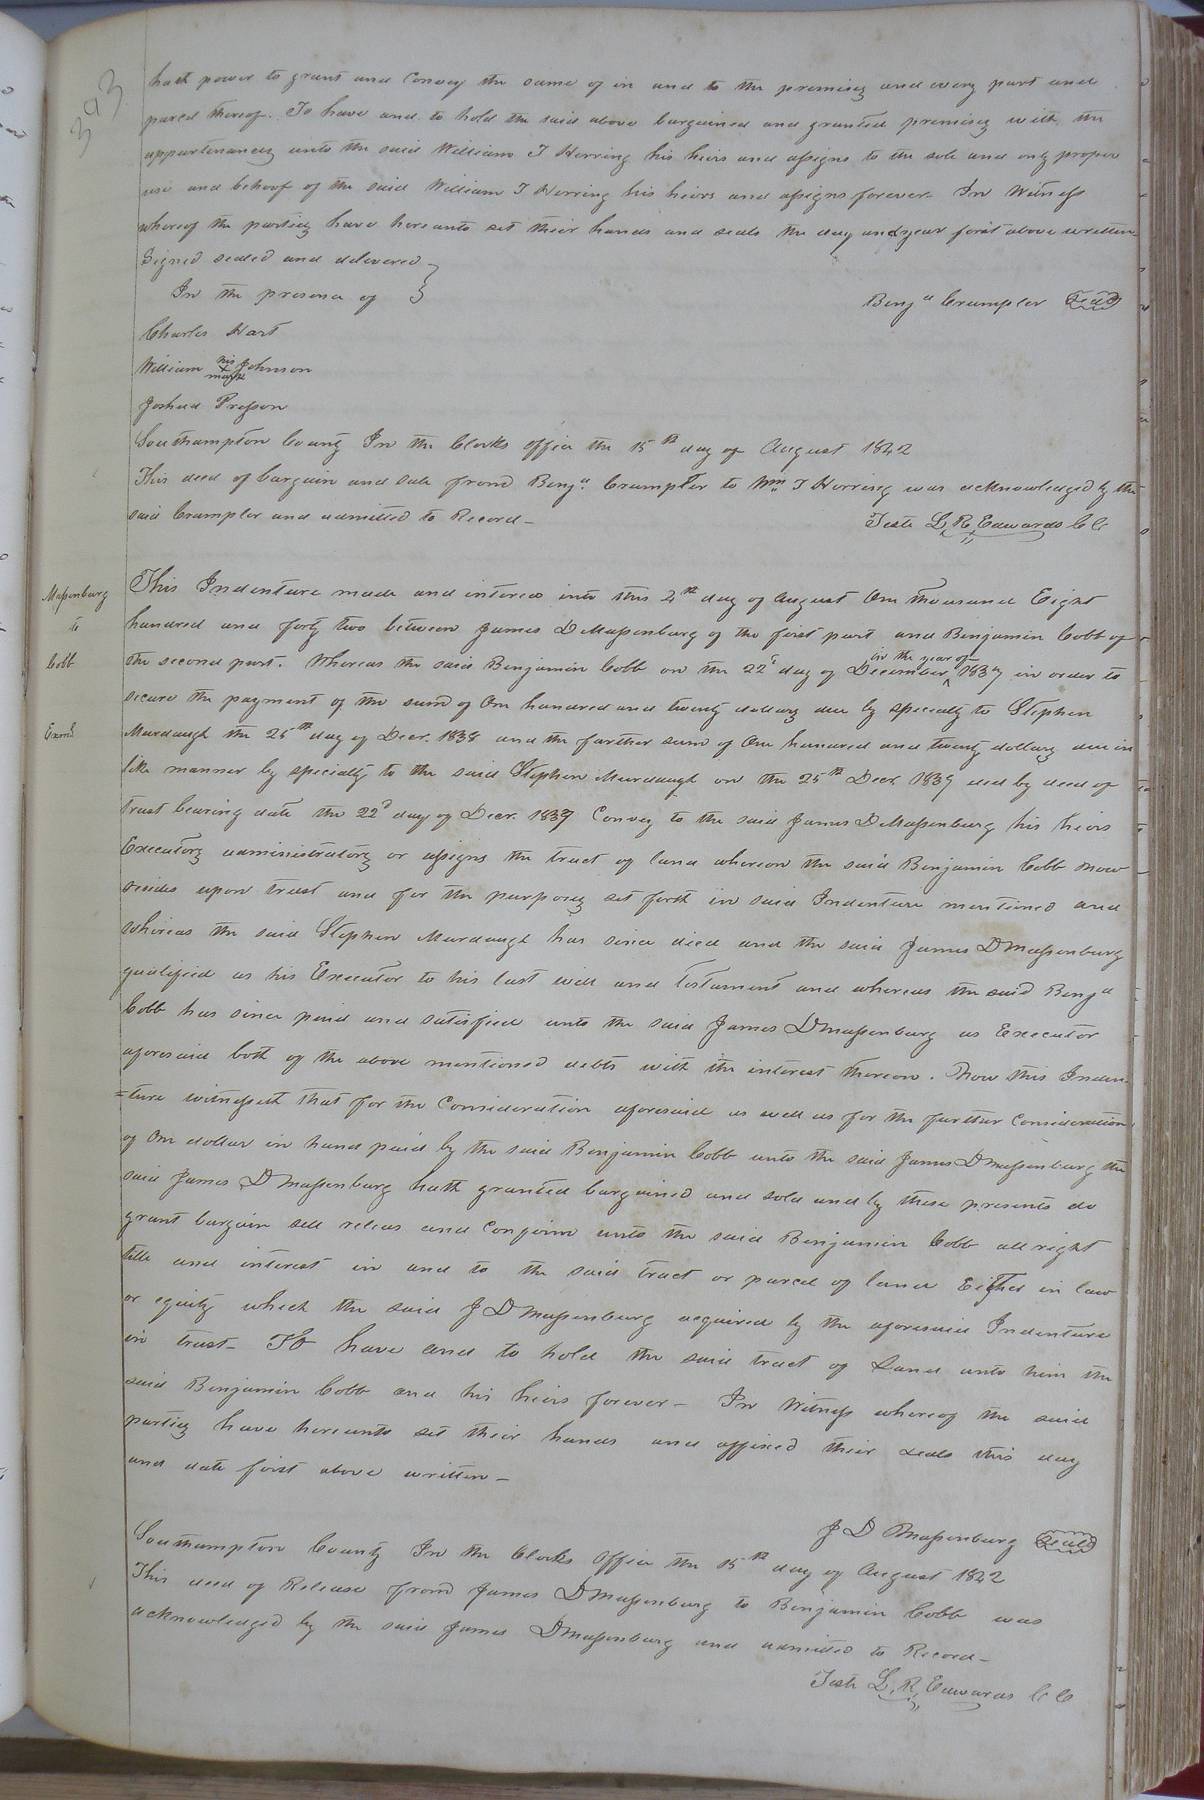 393
hath power to grant and Convey the same of in and to the premises and every part and
parcel thereof. To have and to hold the said above bargained and granted premises with the
appurtenances unto the said William J Herring his heirs and assigns to the sole and only proper
use and behoof of the said William J Herring his heirs and assigns forever– In Witness
whereof the parties have hereunto set their hands and seals the day and year first above written
Signed sealed and delivered
In the presence of
Benja Crumpler Seal
Charles Hart
William his x mark Johnson
Joshua Presson
Southampton County In the Clerks office the 15th day of August 1842
This deed of bargain and sale from Benja Crumpler to Wm J Herring was acknowledged by the
said Crumpler and admitted to Record–
Teste L. R. Edwards C C
Massenburg
to
Cobb
Exmd
This Indenture made and intered into this 4th day of August One thousand Eight
hundred and forty two between James D Massenburg of the first part and Benjamin Cobb of
the second part. Whereas the said Benjamin Cobb on the 22d day of December in the year of 1837 in order to
secure the payment of the sum of One hundred and twenty dollars due by specialty to Stephen
Murdaugh the 25th day of Decr. 1838 and the further sum of One hundred and twenty dollars due in
like manner by specialty to the said Stephen Murdaugh on the 25th Decr. 1839 did by deed of
trust bearing date the 22d day of Decr. 1837 Convey to the said James D Massenburg his heirs
Executors administrators or assigns the tract of land whereon the said Benjamin Cobb now
resides upon trust and for the purposes set forth in said Indenture mentioned and
whereas the said Stephen Murdaugh has since died and the said James D Massenburg
qualified as his Executor to his last will and testament and whereas the said Benja
Cobb has since paid and satisfied unto the said James D Massenburg as Executor
aforesaid both of the above mentioned debts with the interest thereon. Now this Inden-
=ture witnesseth that for the Consideration aforesaid as well as for the further Consideration
of One dollar in hand paid by the said Benjamin Cobb unto the said James D Massenburg the
said James D Massenburg hath granted bargained and sold and by these presents do
grant bargain sell releas and Confirm unto the said Benjamin Cobb all right
title and interest in and to the said tract or parcel of land Either in law
or equity which the said J D Massenburg acquired by the aforesaid Indenture
in trust– To have and to hold the said tract of Land unto him the
said Benjamin Cobb and his heirs forever– In Witness whereof the said
parties have hereunto set their hands and affixed their seals this day
and date first above written–
J D Massenburg Seal
Southampton County In the Clerks Office the 15th day of August 1842
This deed of Release from James D Massenburg to Benjamin Cobb was
acknowledged by the said James D Massenburg and admitted to Record–
Teste L. R. Edwards C C